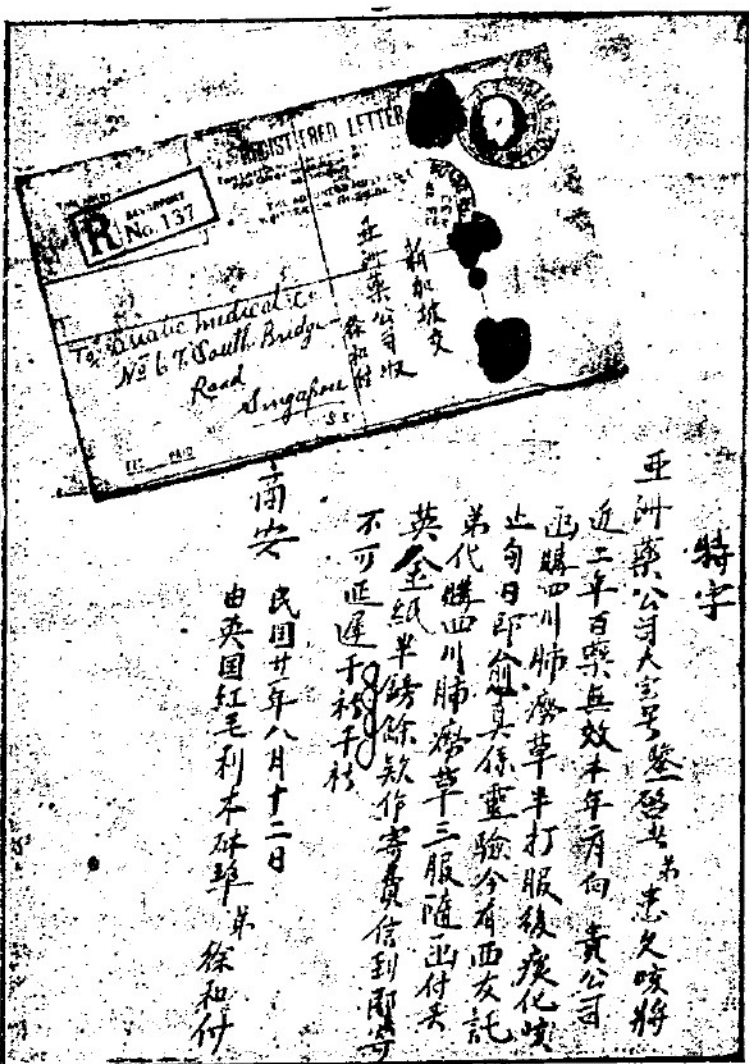 REGISTERED LETTER
R
DAVENPORT
No. 137
To: Asiatic medical Co
No 67. South Bridge
Road
Singapore
S.S.
新加坡交
亞洲藥公司收
徐和付
特字
亞洲藥公司大宝号鑒啓者弟患久咳將
近二年百藥無效本年有向 貴公司
函購四川肺癆草半打服後痰化咳
止旬日即愈真係靈驗今有西友託
弟代購四川肺癆草三服隨函付去
英金紙半鎊餘款作寄費信到即寄
不可延遲千祈千祈
商安
民国廿一年八月十二日
由英国紅毛利本砵埠 弟 徐和付